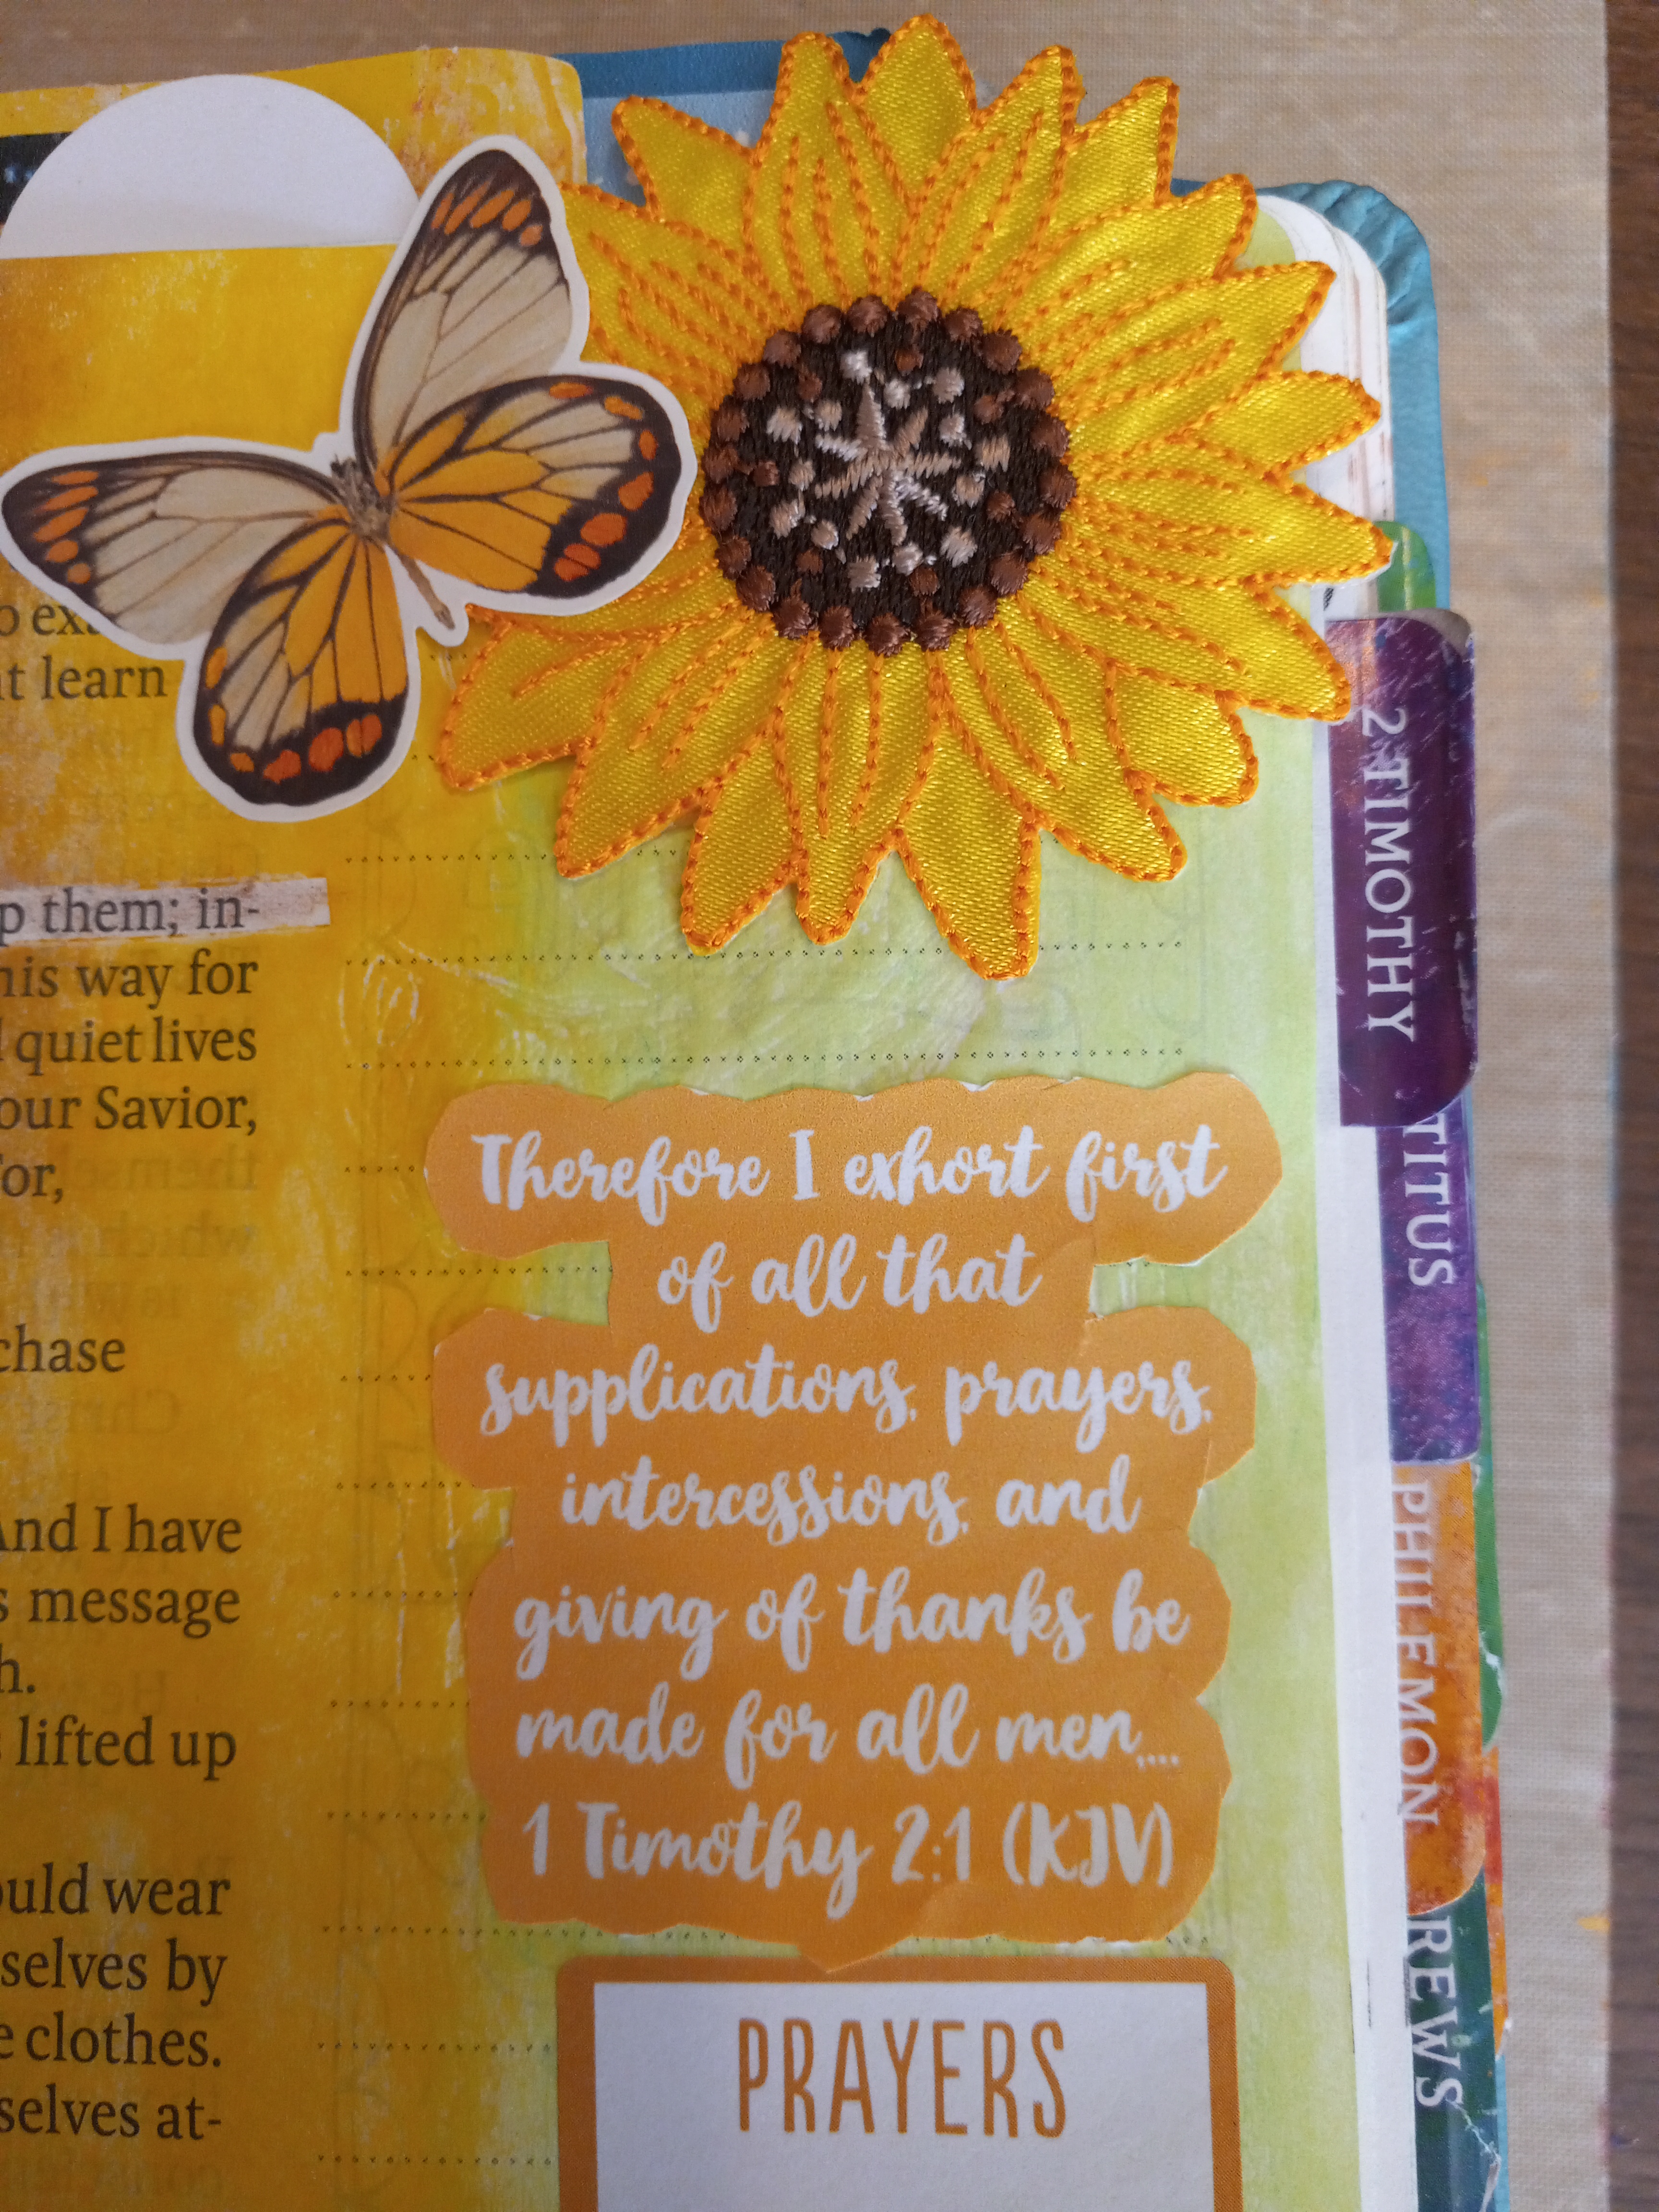 t learn
p them; in-
his way for
quiet lives
our Savior,
or,
chase
And I have
s message
h.
s lifted up
ould wear
selves by
e clothes.
selves at-
Therefore I exhort first
of all that
supplications, prayers,
intercessions, and
giving of thanks be
made for all men,...
1 Timothy 2:1 (KJV)
PRAYERS
2 TIMOTHY
TITUS
PHILEMON
REWS